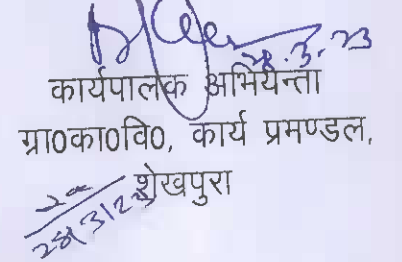 28.3.23
कार्यपालक अभियन्ता
ग्रा0का0वि0, कार्य प्रमण्डल,
शेखपुरा
28/3/23